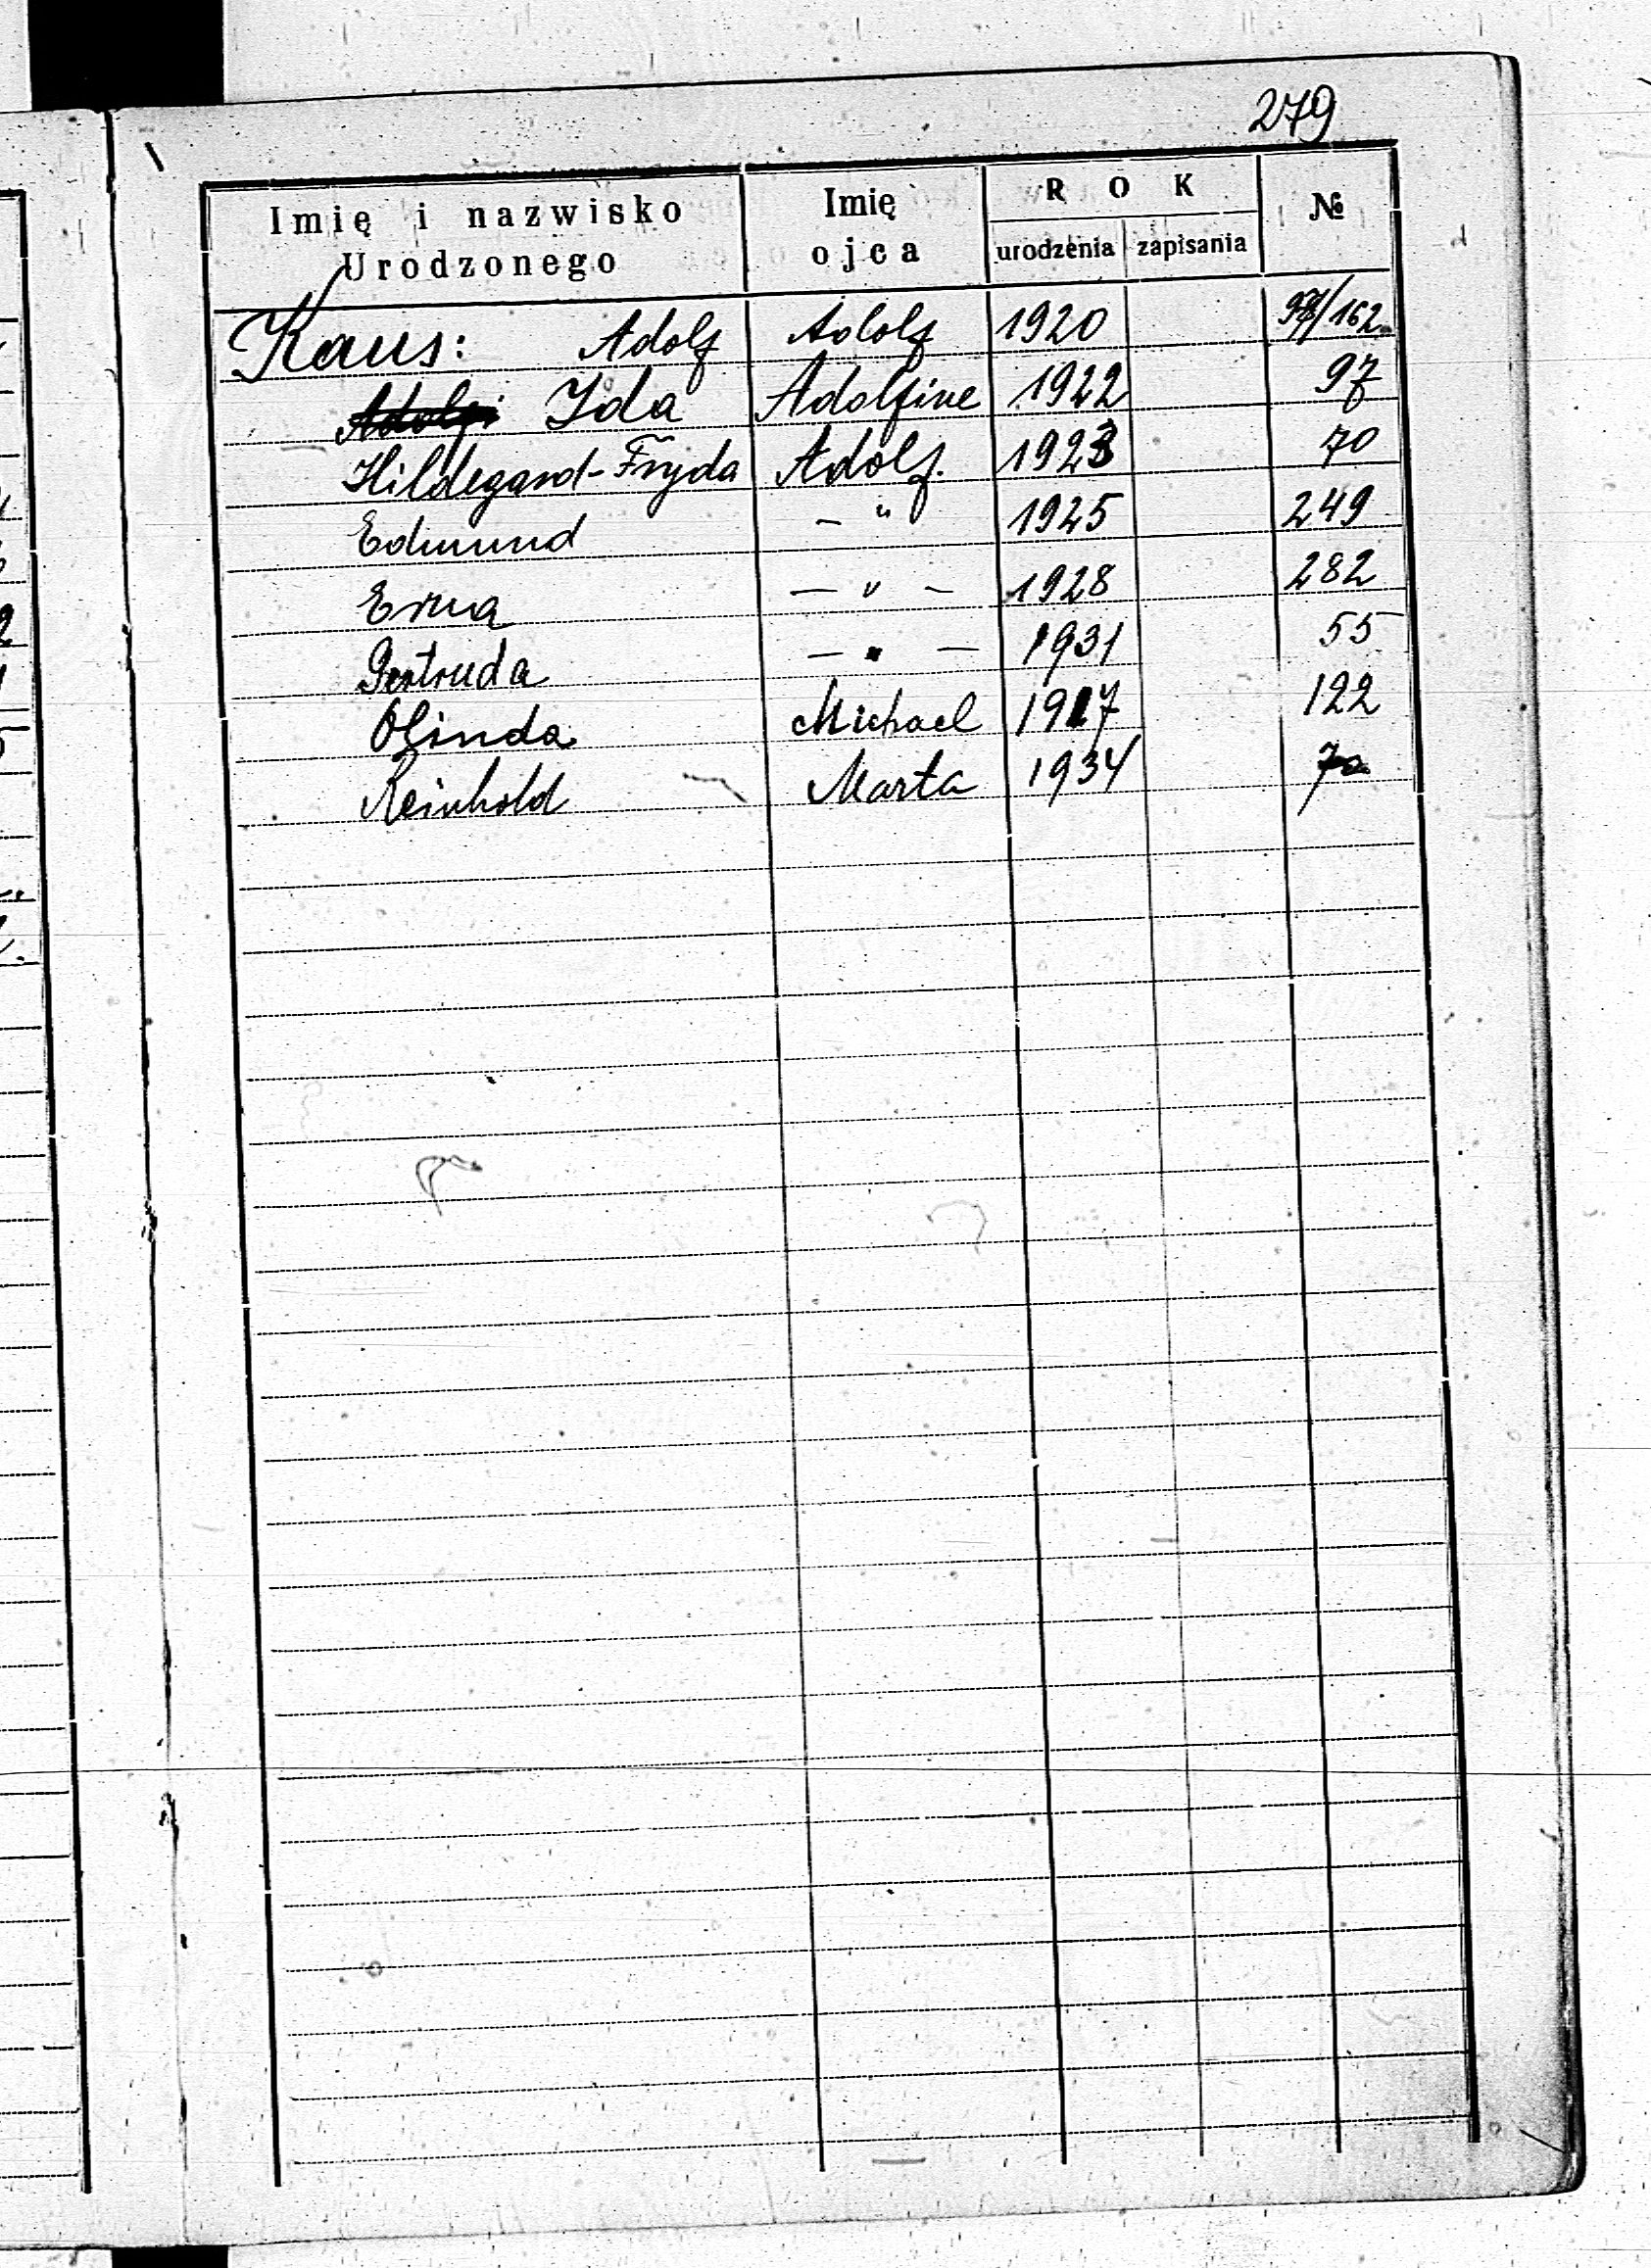 279
Imię i nazwisko Urodzonego Imię ojca ROK urodzenia zapisania №
Kaus: Adolf Adolf 1920 /162
Ida Adolfine 1922 97
Hildegard-Fryda Adolf. 1923 70
Edmund — " 1925 249
Erna — " — 1928 282
Gertruda — " — 1931 55
Olinda Michael 1917 122
Reinhold Marta 1934